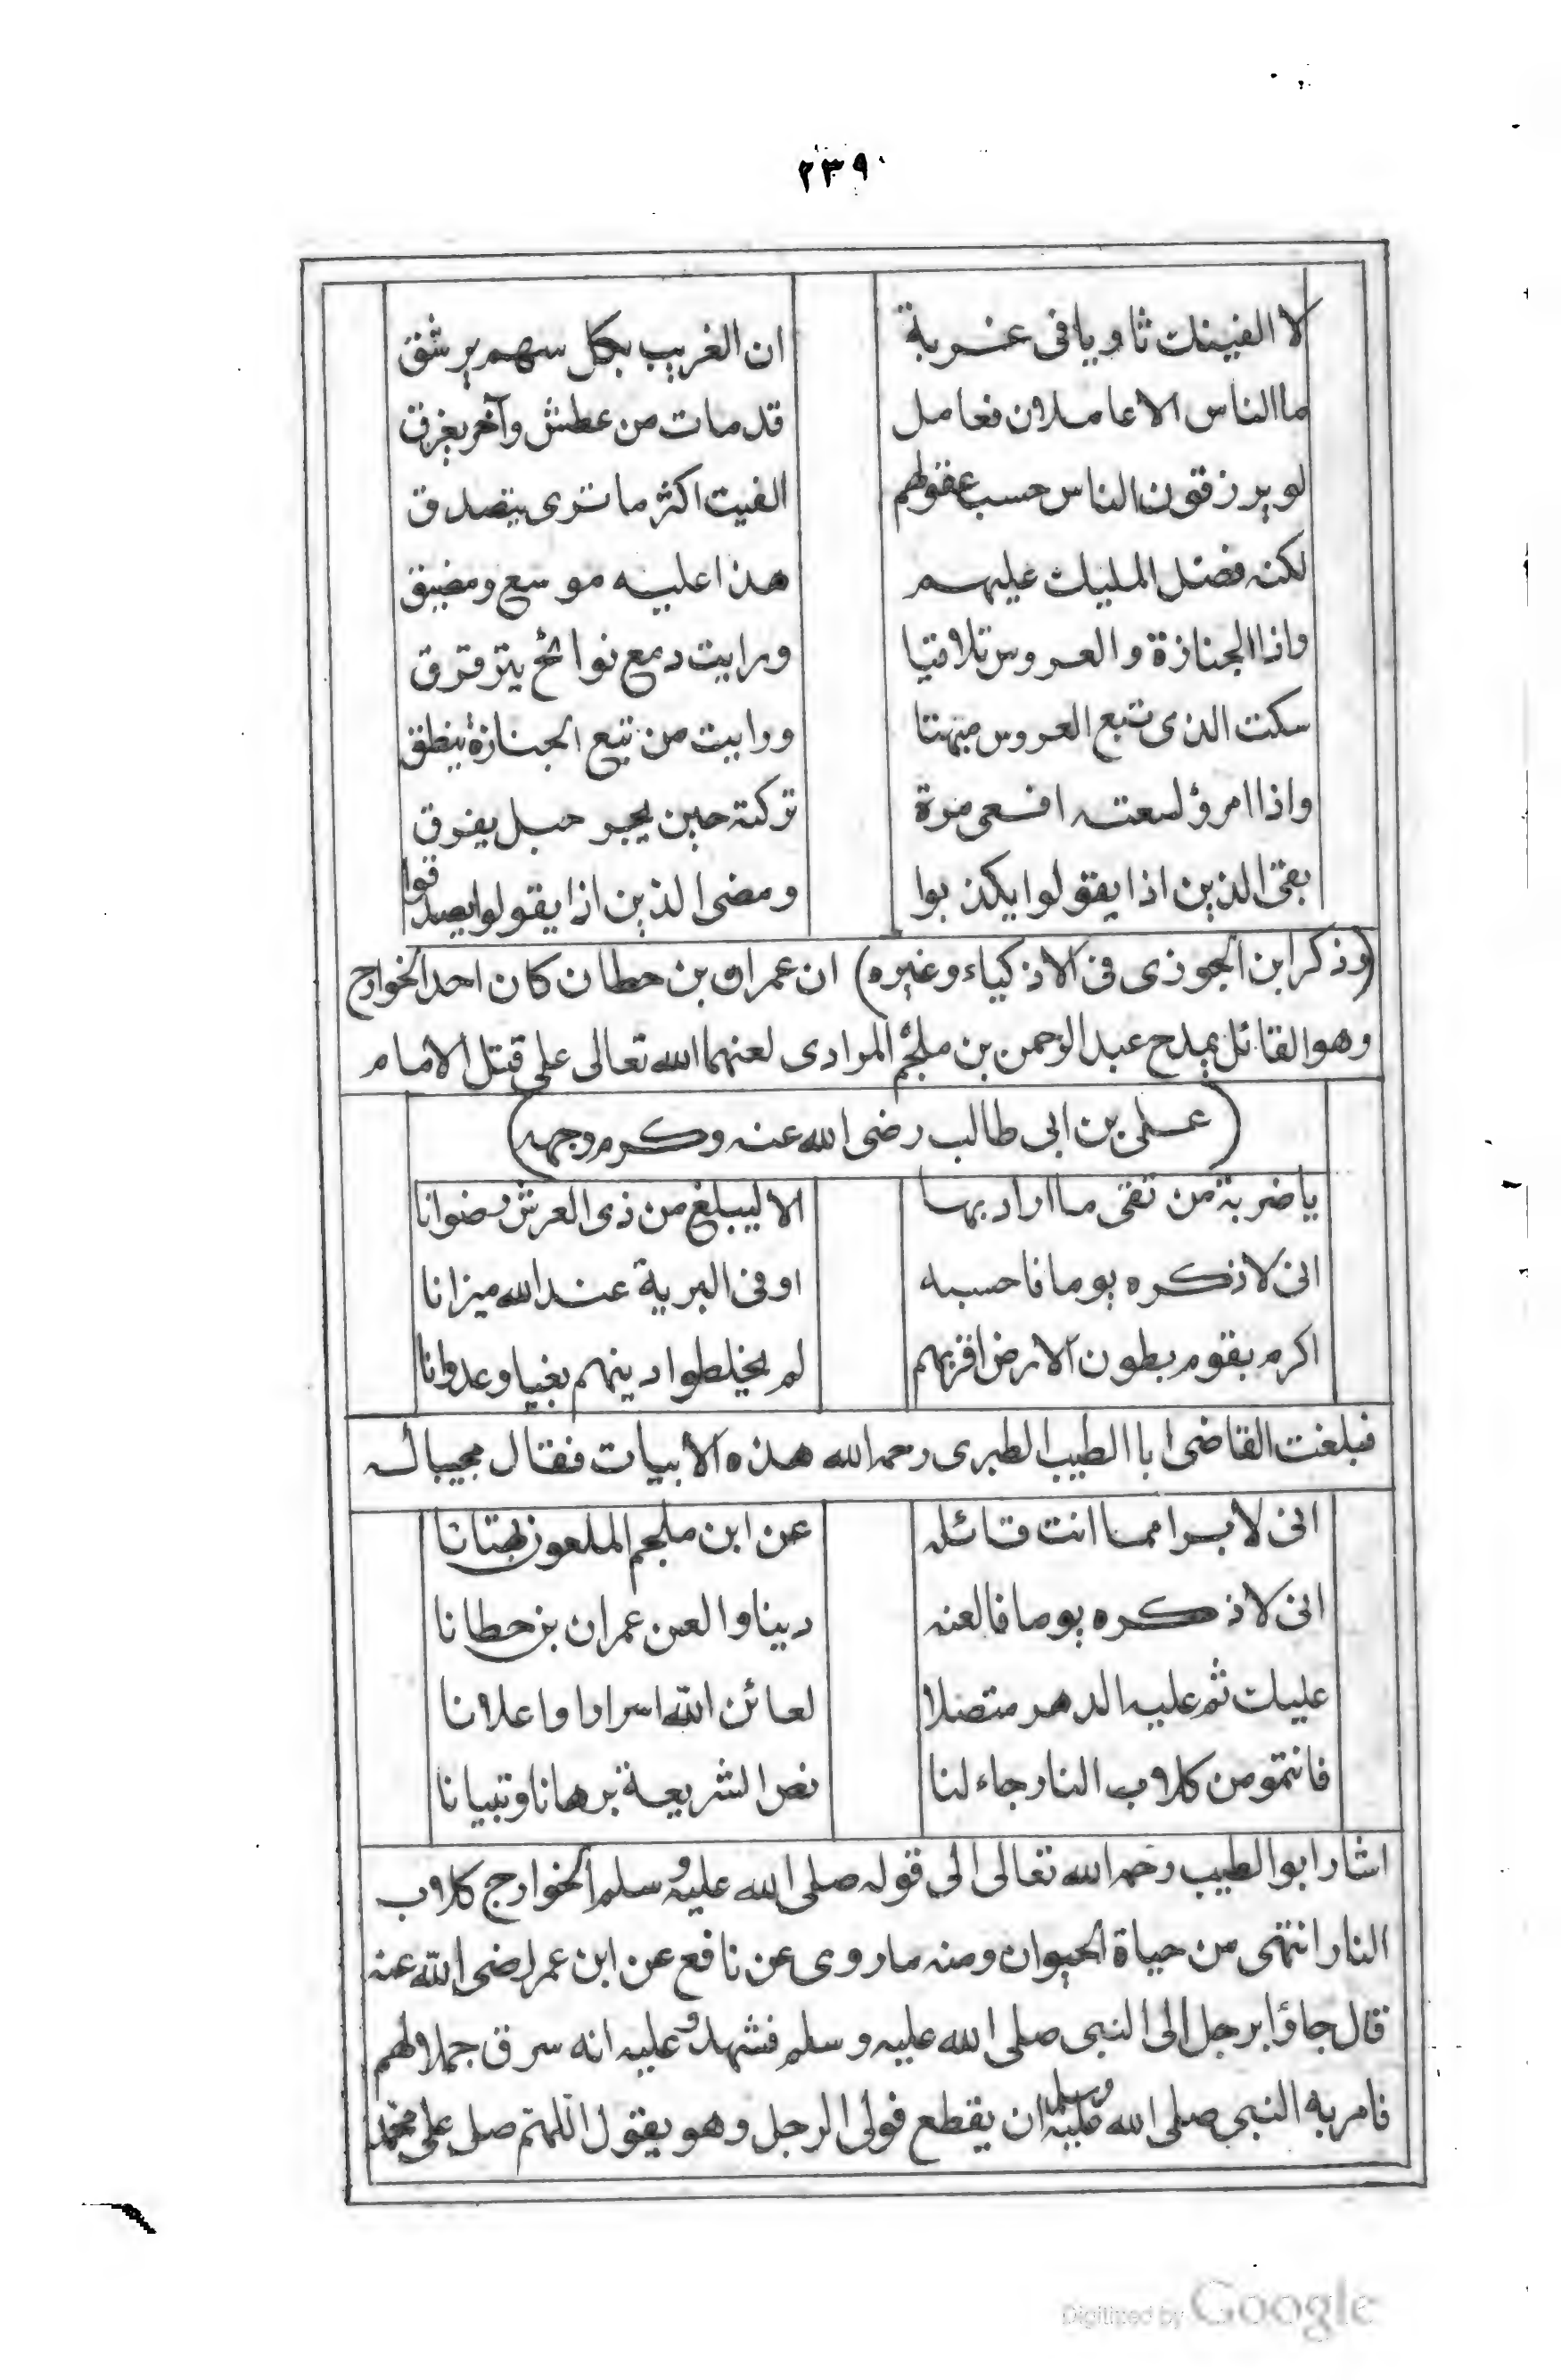 ٢٣٩
لا الفينك ثاويا فى غربة ان الغريب بكل سهم يرشق
ما الناس الا عاملان فعامل قد مات من عطش وآخر يغرق
لو يرزقون الناس حسب عقولهم الفيت اكثر ما ترى يتصدق
لكنه فضل المليك عليهم هذا عليه موسع ومضيق
واذا الجنازة والعروس تلاقيا ورايت دمع نوائح يترقرق
سكت الذى تبع العروس مبهتا ورايت من تبع الجنازة ينطق
واذا امرؤ لسعته افعى مرة تركته حين يجر حبل يفرق
بقى الذين اذا يقولوا يكذبوا ومضى الذين اذا يقولوا يصدقوا
(وذكر ابن الجوزى فى الاذكياء وغيره) ان عمران بن حطان كان احد الخوارج
وهو القائل يمدح عبد الرحمن بن ملجم المرادى لعنهما الله تعالى على قتل الامام
(على بن ابى طالب رضى الله عنه وكرم وجهه)
يا ضربة من تقى ما اراد بها الا ليبلغ من ذى العرش رضوانا
انى لاذكره يوما فاحسبه اوفى البرية عند الله ميزانا
اكرم بقوم بطون الارض اقربهم لم يخلطوا دينهم بغيا وعدوانا
فبلغت القاضى ابا الطيب الطبرى رحمه الله هذه الابيات فقال مجيبا له
انى لابرا مما انت قائله عن ابن ملجم الملعون بهتانا
انى لاذكره يوما فالعنه دينا والعن عمران بن حطانا
عليك ثم عليه الدهر متصلا لعائن الله اسرارا واعلانا
فانتمو من كلاب النار جاء لنا نص الشريعة برهانا وتبيانا
اشار ابو الطيب رحمه الله تعالى الى قوله صلى الله عليه وسلم الخوارج كلاب
النار انتهى من حياة الحيوان ومنه ما روى عن نافع عن ابن عمر رضى الله عنه
قال جاؤا برجل الى النبى صلى الله عليه وسلم فشهدوا عليه انه سرق جملا لهم
فامر به النبى صلى الله عليه وسلم ان يقطع فولى الرجل وهو يقول اللهم صل على محمد
Digitized by Google